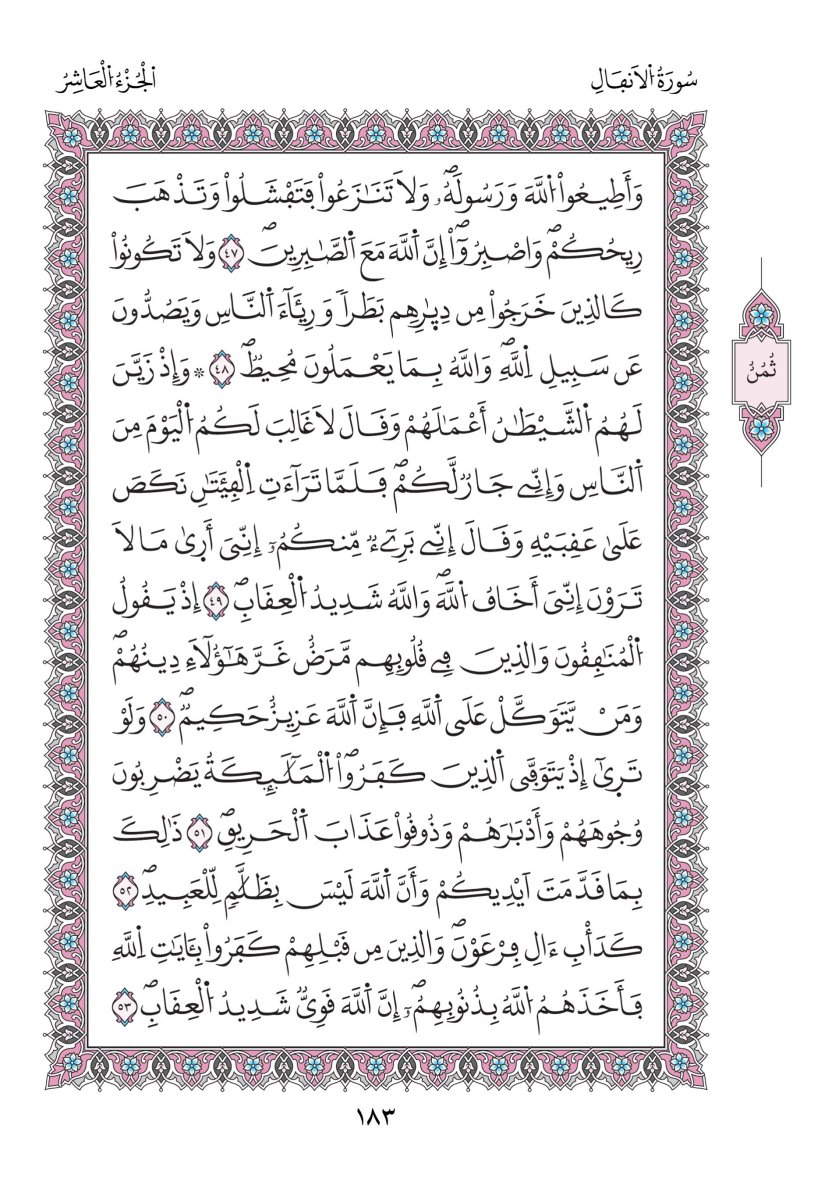 سُورَةُ اُ۬لَانفَالِ
اُ۬لْجُزْءُ اُ۬لْعَاشِرُ
وَأَطِيعُواْ اُ۬للَّهَ وَرَسُولَهُۥۖ وَلَا تَنَٰزَعُواْ فَتَفْشَلُواْ وَتَذْهَبَ
رِيحُكُمْۖ وَاصْبِرُوٓاْۖ إِنَّ اَ۬للَّهَ مَعَ اَ۬لصَّٰبِرِينَۖ ٤٧ وَلَا تَكُونُواْ
كَالذِينَ خَرَجُواْ مِن دِيٰ۪رِهِم بَطَراٗ وَرِئَآءَ اَ۬لنَّاسِ وَيَصُدُّونَ
عَن سَبِيلِ اِ۬للَّهِۖ وَاللَّهُ بِمَا يَعْمَلُونَ مُحِيطٞۖ ٤٨ ۞ وَإِذْ زَيَّنَ
لَهُمُ اُ۬لشَّيْطَٰنُ أَعْمَٰلَهُمْ وَقَالَ لَا غَالِبَ لَكُمُ اُ۬لْيَوْمَ مِنَ
اَ۬لنَّاسِ وَإِنِّے جَارٞ لَّكُمْۖ فَلَمَّا تَرَآءَتِ اِ۬لْفِئَتَٰنِ نَكَصَ
عَلَىٰ عَقِبَيْهِ وَقَالَ إِنِّے بَرِےٓءٞ مِّنكُمُۥٓ إِنِّيَ أَر۪ىٰ مَا لَا
تَرَوْنَ إِنِّيَ أَخَافُ اُ۬للَّهَۖ وَاللَّهُ شَدِيدُ اُ۬لْعِقَابِۖ ٤٩ إِذْ يَقُولُ
اُ۬لْمُنَٰفِقُونَ وَالذِينَ فِے قُلُوبِهِم مَّرَضٌ غَرَّ هَٰٓؤُلَآءِ دِينُهُمْۖ
وَمَنْ يَّتَوَكَّلْ عَلَى اَ۬للَّهِ فَإِنَّ اَ۬للَّهَ عَزِيزٌ حَكِيمٞۖ ٥٠ وَلَوْ
تَر۪ىٰٓ إِذْ يَتَوَفَّى اَ۬لذِينَ كَفَرُواْۖ اُ۬لْمَلَٰٓئِكَةُ يَضْرِبُونَ
وُجُوهَهُمْ وَأَدْبَٰرَهُمْ وَذُوقُواْ عَذَابَ اَ۬لْحَرِيقِۖ ٥١ ذَٰلِكَ
بِمَا قَدَّمَتَ اَيْدِيكُمْ وَأَنَّ اَ۬للَّهَ لَيْسَ بِظَلَّٰمٖ لِّلْعَبِيدِۖ ٥٢
كَدَأْبِ ءَالِ فِرْعَوْنَۖ وَالذِينَ مِن قَبْلِهِمْ كَفَرُواْ بِـَٔايَٰتِ اِ۬للَّهِ
فَأَخَذَهُمُ اُ۬للَّهُ بِذُنُوبِهِمُۥٓۖ إِنَّ اَ۬للَّهَ قَوِيّٞ شَدِيدُ اُ۬لْعِقَابِۖ ٥٣
ثُمُنُ
١٨٣